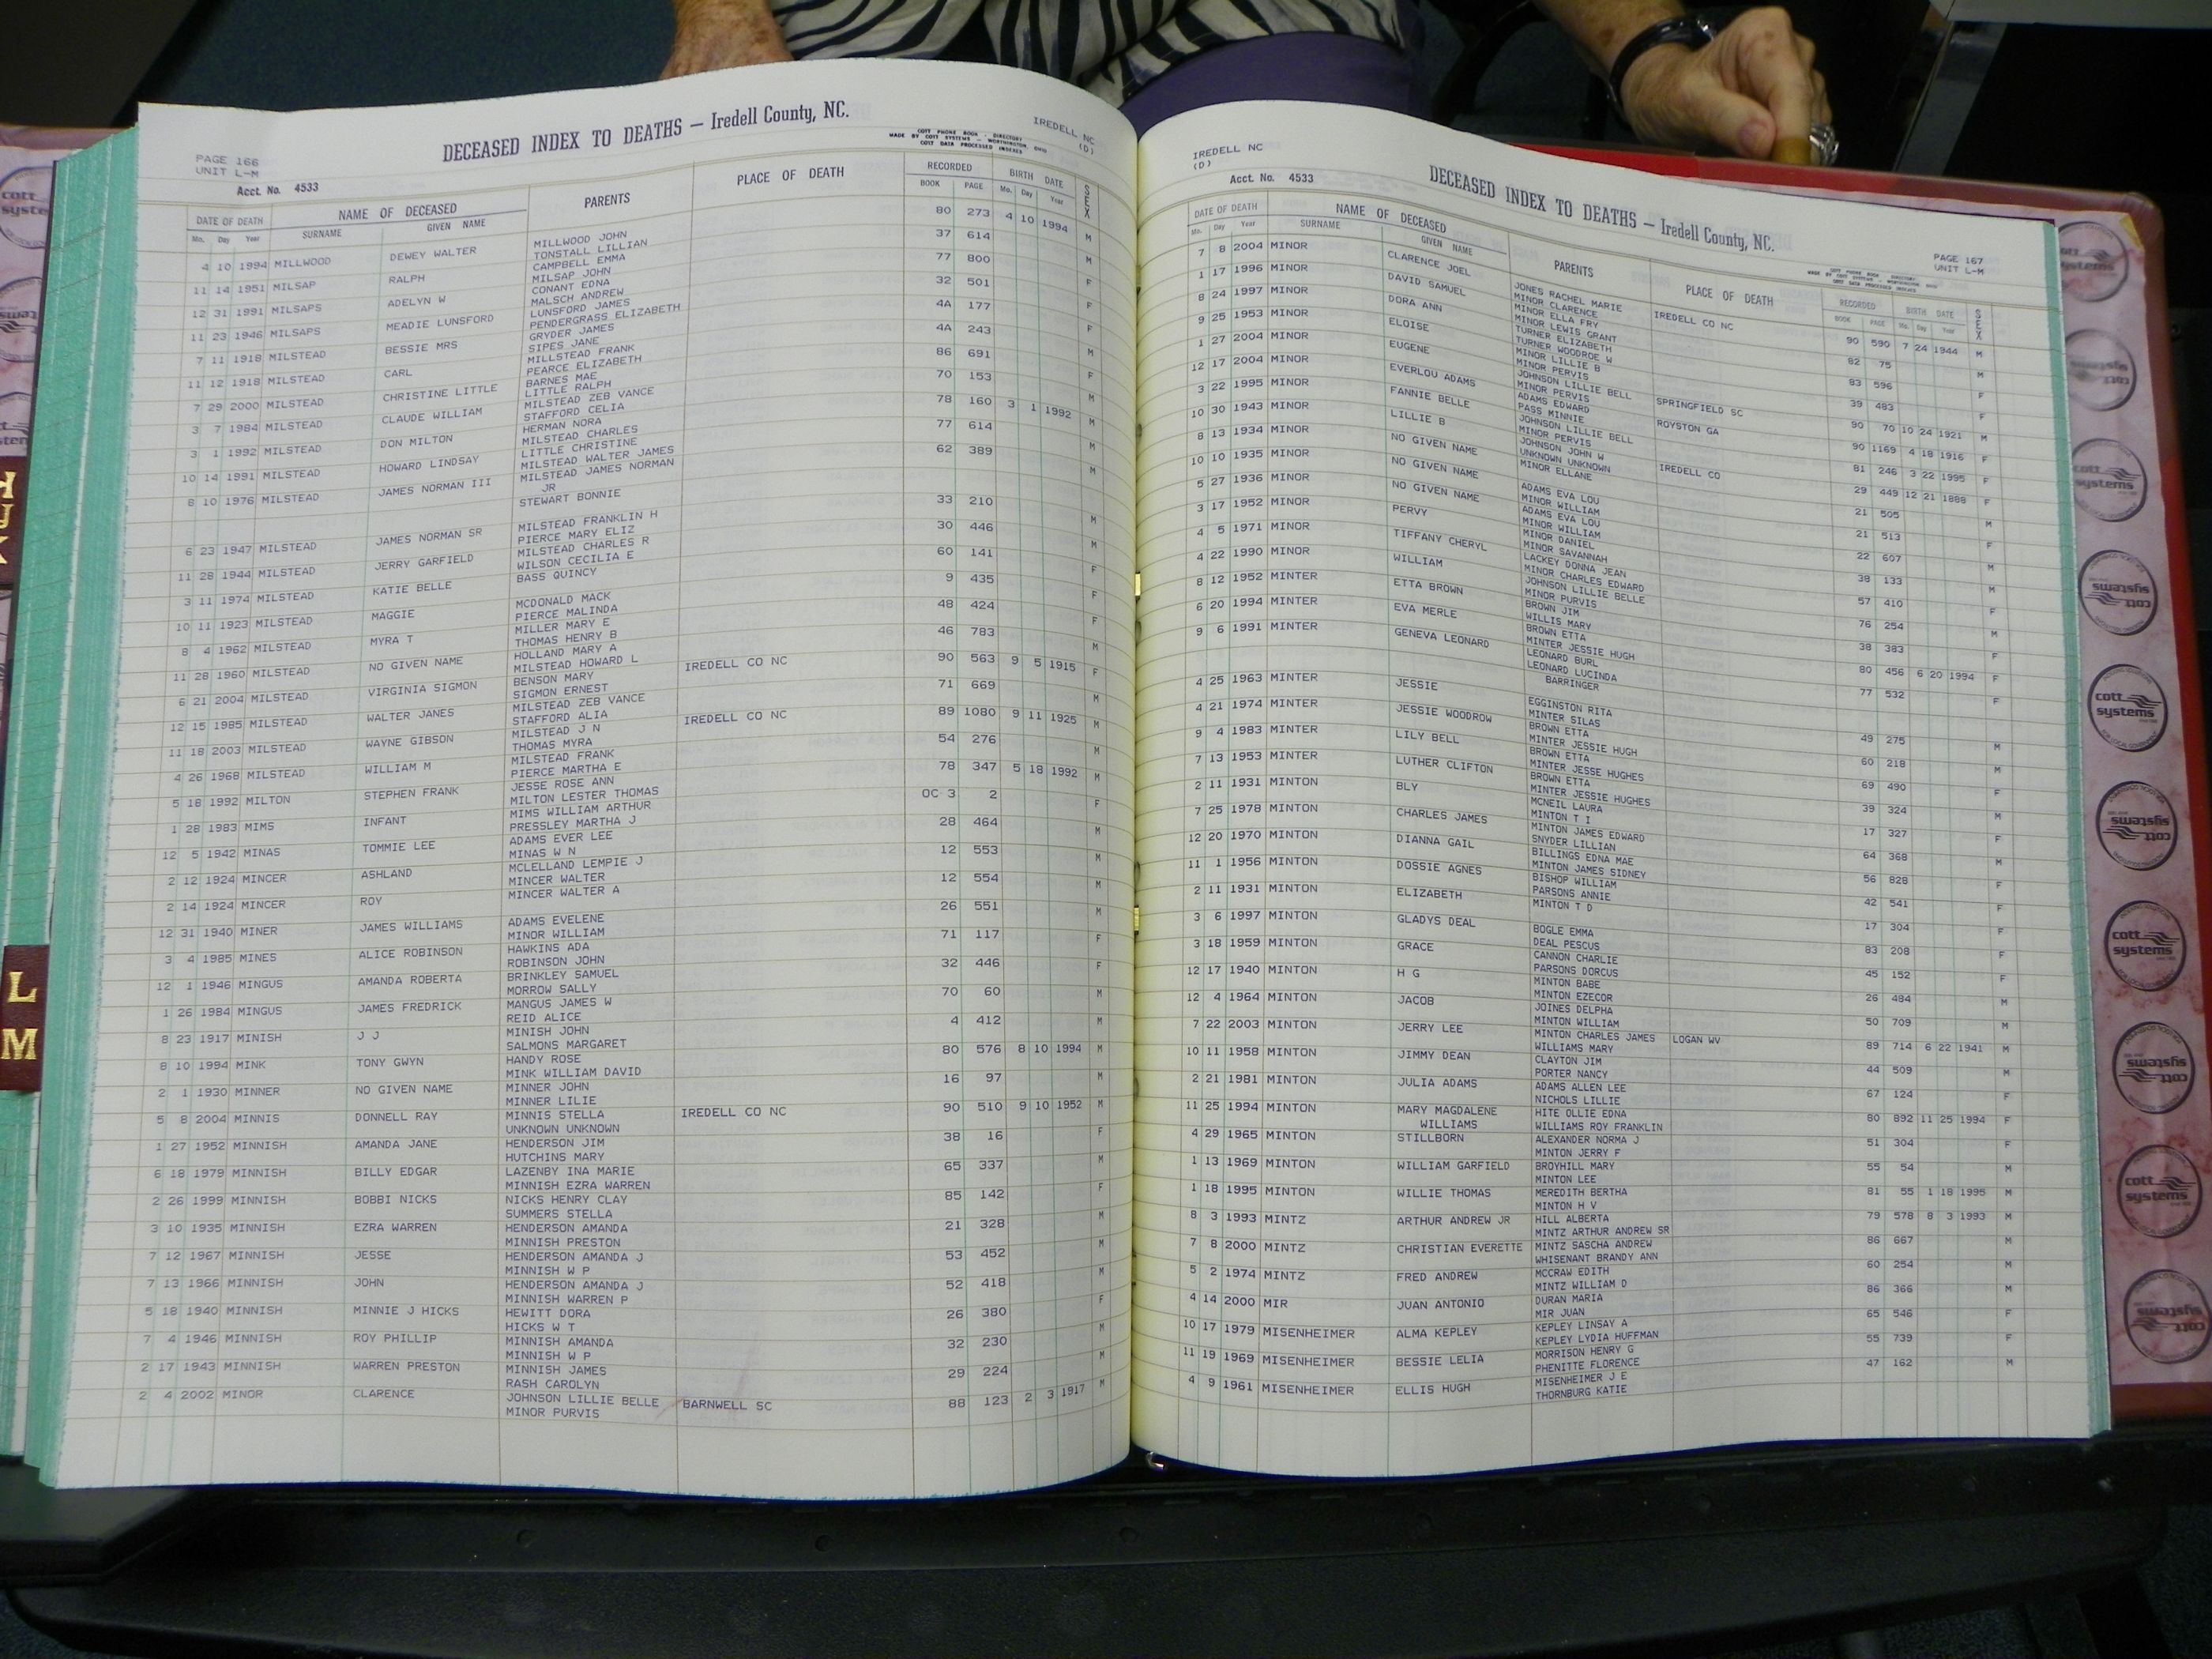 DECEASED INDEX TO DEATHS — Iredell County, NC.
IREDELL NC
(D)
COTT PHONE BOOK - DIRECTORY
MADE BY COTT SYSTEMS - WORTHINGTON, OHIO
COTT DATA PROCESSED INDEXES
PAGE 166
UNIT L-M
Acct. No. 4533
DATE OF DEATH NAME OF DECEASED PARENTS PLACE OF DEATH RECORDED BIRTH DATE SEX
Mo. Day Year SURNAME GIVEN NAME BOOK PAGE Mo. Day Year
4 10 1994 MILLWOOD DEWEY WALTER MILLWOOD JOHN 80 273 4 10 1994 M
TONSTALL LILLIAN
11 14 1951 MILSAP RALPH CAMPBELL EMMA 37 614 M
MILSAP JOHN
12 31 1991 MILSAPS ADELYN W CONANT EDNA 77 800 F
MALSCH ANDREW
11 23 1946 MILSAPS MEADIE LUNSFORD LUNSFORD JAMES 32 501 F
PENDERGRASS ELIZABETH
7 11 1918 MILSTEAD BESSIE MRS GRYDER JAMES 4A 177 F
SIPES JANE
11 12 1918 MILSTEAD CARL MILLSTEAD FRANK 4A 243 M
PEARCE ELIZABETH
7 29 2000 MILSTEAD CHRISTINE LITTLE BARNES MAE 86 691 F
LITTLE RALPH
3 7 1984 MILSTEAD CLAUDE WILLIAM MILSTEAD ZEB VANCE 70 153 M
STAFFORD CELIA
3 1 1992 MILSTEAD DON MILTON HERMAN NORA 78 160 3 1 1992 M
MILSTEAD CHARLES
10 14 1991 MILSTEAD HOWARD LINDSAY LITTLE CHRISTINE 77 614 M
MILSTEAD WALTER JAMES
8 10 1976 MILSTEAD JAMES NORMAN III MILSTEAD JAMES NORMAN 62 389 M
JR
STEWART BONNIE
6 23 1947 MILSTEAD JAMES NORMAN SR MILSTEAD FRANKLIN H 33 210 M
PIERCE MARY ELIZ
11 28 1944 MILSTEAD JERRY GARFIELD MILSTEAD CHARLES R 30 446 M
WILSON CECILIA E
3 11 1974 MILSTEAD KATIE BELLE BASS QUINCY 60 141 F
10 11 1923 MILSTEAD MAGGIE MCDONALD MACK 9 435 F
PIERCE MALINDA
8 4 1962 MILSTEAD MYRA T MILLER MARY E 48 424 F
THOMAS HENRY B
11 28 1960 MILSTEAD NO GIVEN NAME HOLLAND MARY A 46 783 M
MILSTEAD HOWARD L
6 21 2004 MILSTEAD VIRGINIA SIGMON BENSON MARY IREDELL CO NC 90 563 9 5 1915 F
SIGMON ERNEST
12 15 1985 MILSTEAD WALTER JANES MILSTEAD ZEB VANCE 71 669 M
STAFFORD ALIA
11 18 2003 MILSTEAD WAYNE GIBSON MILSTEAD J N IREDELL CO NC 89 1080 9 11 1925 M
THOMAS MYRA
4 26 1968 MILSTEAD WILLIAM M MILSTEAD FRANK 54 276 M
PIERCE MARTHA E
5 18 1992 MILTON STEPHEN FRANK JESSE ROSE ANN 78 347 5 18 1992 M
MILTON LESTER THOMAS
1 28 1983 MIMS INFANT MIMS WILLIAM ARTHUR OC 3 2 F
PRESSLEY MARTHA J
12 5 1942 MINAS TOMMIE LEE ADAMS EVER LEE 28 464 M
MINAS W N
2 12 1924 MINCER ASHLAND MCLELLAND LEMPIE J 12 553 M
MINCER WALTER
2 14 1924 MINCER ROY MINCER WALTER A 12 554 M
12 31 1940 MINER JAMES WILLIAMS ADAMS EVELENE 26 551 M
MINOR WILLIAM
3 4 1985 MINES ALICE ROBINSON HAWKINS ADA 71 117 F
ROBINSON JOHN
12 1 1946 MINGUS AMANDA ROBERTA BRINKLEY SAMUEL 32 446 F
MORROW SALLY
1 26 1984 MINGUS JAMES FREDRICK MANGUS JAMES W 70 60 M
REID ALICE
8 23 1917 MINISH J J MINISH JOHN 4 412 M
SALMONS MARGARET
8 10 1994 MINK TONY GWYN HANDY ROSE 80 576 8 10 1994 M
MINK WILLIAM DAVID
2 1 1930 MINNER NO GIVEN NAME MINNER JOHN 16 97 M
MINNER LILIE
5 8 2004 MINNIS DONNELL RAY MINNIS STELLA IREDELL CO NC 90 510 9 10 1952 M
UNKNOWN UNKNOWN
1 27 1952 MINNISH AMANDA JANE HENDERSON JIM 38 16 F
HUTCHINS MARY
6 18 1979 MINNISH BILLY EDGAR LAZENBY INA MARIE 65 337 M
MINNISH EZRA WARREN
2 26 1999 MINNISH BOBBI NICKS NICKS HENRY CLAY 85 142 F
SUMMERS STELLA
3 10 1935 MINNISH EZRA WARREN HENDERSON AMANDA 21 328 M
MINNISH PRESTON
7 12 1967 MINNISH JESSE HENDERSON AMANDA J 53 452 M
MINNISH W P
7 13 1966 MINNISH JOHN HENDERSON AMANDA J 52 418 M
MINNISH WARREN P
5 18 1940 MINNISH MINNIE J HICKS HEWITT DORA 26 380 F
HICKS W T
7 4 1946 MINNISH ROY PHILLIP MINNISH AMANDA 32 230 M
MINNISH W P
2 17 1943 MINNISH WARREN PRESTON MINNISH JAMES 29 224 M
RASH CAROLYN
2 4 2002 MINOR CLARENCE JOHNSON LILLIE BELLE BARNWELL SC 88 123 2 3 1917 M
MINOR PURVIS
IREDELL NC
(D)
Acct. No. 4533
DECEASED INDEX TO DEATHS — Iredell County, NC.
PAGE 167
UNIT L-M
COTT PHONE BOOK - DIRECTORY
MADE BY COTT SYSTEMS - WORTHINGTON, OHIO
COTT DATA PROCESSED INDEXES
DATE OF DEATH NAME OF DECEASED PARENTS PLACE OF DEATH RECORDED BIRTH DATE SEX
Mo. Day Year SURNAME GIVEN NAME BOOK PAGE Mo. Day Year
7 8 2004 MINOR CLARENCE JOEL JONES RACHEL MARIE IREDELL CO NC 90 590 7 24 1944 M
MINOR CLARENCE
1 17 1996 MINOR DAVID SAMUEL MINOR ELLA FRY 82 75 M
MINOR LEWIS GRANT
8 24 1997 MINOR DORA ANN TURNER ELIZABETH 83 596 F
TURNER WOODROE W
9 25 1953 MINOR ELOISE MINOR LILLIE B 39 483 F
MINOR PERVIS
1 27 2004 MINOR EUGENE JOHNSON LILLIE BELL SPRINGFIELD SC 90 70 10 24 1921 M
MINOR PERVIS
12 17 2004 MINOR EVERLOU ADAMS ADAMS EDWARD ROYSTON GA 90 1169 4 18 1916 F
PASS MINNIE
3 22 1995 MINOR FANNIE BELLE JOHNSON LILLIE BELL IREDELL CO 81 246 3 22 1995 F
MINOR PERVIS
10 30 1943 MINOR LILLIE B JOHNSON JOHN W 29 449 12 21 1888 F
UNKNOWN UNKNOWN
8 13 1934 MINOR NO GIVEN NAME MINOR ELLANE 21 505 M
10 10 1935 MINOR NO GIVEN NAME ADAMS EVA LOU 21 513 F
MINOR WILLIAM
5 27 1936 MINOR NO GIVEN NAME ADAMS EVA LOU 22 607 M
MINOR WILLIAM
3 17 1952 MINOR PERVY MINOR DANIEL 38 133 M
MINOR SAVANNAH
4 5 1971 MINOR TIFFANY CHERYL LACKEY DONNA JEAN 57 410 F
MINOR CHARLES EDWARD
4 22 1990 MINOR WILLIAM JOHNSON LILLIE BELLE 76 254 M
MINOR PURVIS
8 12 1952 MINTER ETTA BROWN BROWN JIM 38 383 F
WILLIS MARY
6 20 1994 MINTER EVA MERLE BROWN ETTA 80 456 6 20 1994 F
MINTER JESSIE HUGH
9 6 1991 MINTER GENEVA LEONARD LEONARD BURL 77 532 F
LEONARD LUCINDA
BARRINGER
4 25 1963 MINTER JESSIE EGGINSTON RITA 49 275 M
MINTER SILAS
4 21 1974 MINTER JESSIE WOODROW BROWN ETTA 60 218 M
MINTER JESSIE HUGH
9 4 1983 MINTER LILY BELL BROWN ETTA 69 490 F
MINTER JESSE HUGHES
7 13 1953 MINTER LUTHER CLIFTON BROWN ETTA 39 324 M
MINTER JESSIE HUGHES
2 11 1931 MINTON BLY MCNEIL LAURA 17 327 F
MINTON T I
7 25 1978 MINTON CHARLES JAMES MINTON JAMES EDWARD 64 368 M
SNYDER LILLIAN
12 20 1970 MINTON DIANNA GAIL BILLINGS EDNA MAE 56 828 F
MINTON JAMES SIDNEY
11 1 1956 MINTON DOSSIE AGNES BISHOP WILLIAM 42 541 F
PARSONS ANNIE
2 11 1931 MINTON ELIZABETH MINTON T D 17 304 F
3 6 1997 MINTON GLADYS DEAL BOGLE EMMA 83 208 F
DEAL PESCUS
3 18 1959 MINTON GRACE CANNON CHARLIE 45 152 F
PARSONS DORCUS
12 17 1940 MINTON H G MINTON BABE 26 484 M
MINTON EZECOR
12 4 1964 MINTON JACOB JOINES DELPHA 50 709 M
MINTON WILLIAM
7 22 2003 MINTON JERRY LEE MINTON CHARLES JAMES LOGAN WV 89 714 6 22 1941 M
WILLIAMS MARY
10 11 1958 MINTON JIMMY DEAN CLAYTON JIM 44 509 M
PORTER NANCY
2 21 1981 MINTON JULIA ADAMS ADAMS ALLEN LEE 67 124 F
NICHOLS LILLIE
11 25 1994 MINTON MARY MAGDALENE HITE OLLIE EDNA 80 892 11 25 1994 F
WILLIAMS WILLIAMS ROY FRANKLIN
4 29 1965 MINTON STILLBORN ALEXANDER NORMA J 51 304 F
MINTON JERRY F
1 13 1969 MINTON WILLIAM GARFIELD BROYHILL MARY 55 54 M
MINTON LEE
1 18 1995 MINTON WILLIE THOMAS MEREDITH BERTHA 81 55 1 18 1995 M
MINTON H V
8 3 1993 MINTZ ARTHUR ANDREW JR HILL ALBERTA 79 578 8 3 1993 M
MINTZ ARTHUR ANDREW SR
7 8 2000 MINTZ CHRISTIAN EVERETTE MINTZ SASCHA ANDREW 86 667 M
WHISENANT BRANDY ANN
5 2 1974 MINTZ FRED ANDREW MCCRAW EDITH 60 254 M
MINTZ WILLIAM D
4 14 2000 MIR JUAN ANTONIO DURAN MARIA 86 366 M
MIR JUAN
10 17 1979 MISENHEIMER ALMA KEPLEY KEPLEY LINSAY A 65 546 F
KEPLEY LYDIA HUFFMAN
11 19 1969 MISENHEIMER BESSIE LELIA MORRISON HENRY G 55 739 F
PHENITTE FLORENCE
4 9 1961 MISENHEIMER ELLIS HUGH MISENHEIMER J E 47 162 M
THORNBURG KATIE
L
M
cott
systems
cott
systems
cott
systems
cott
systems